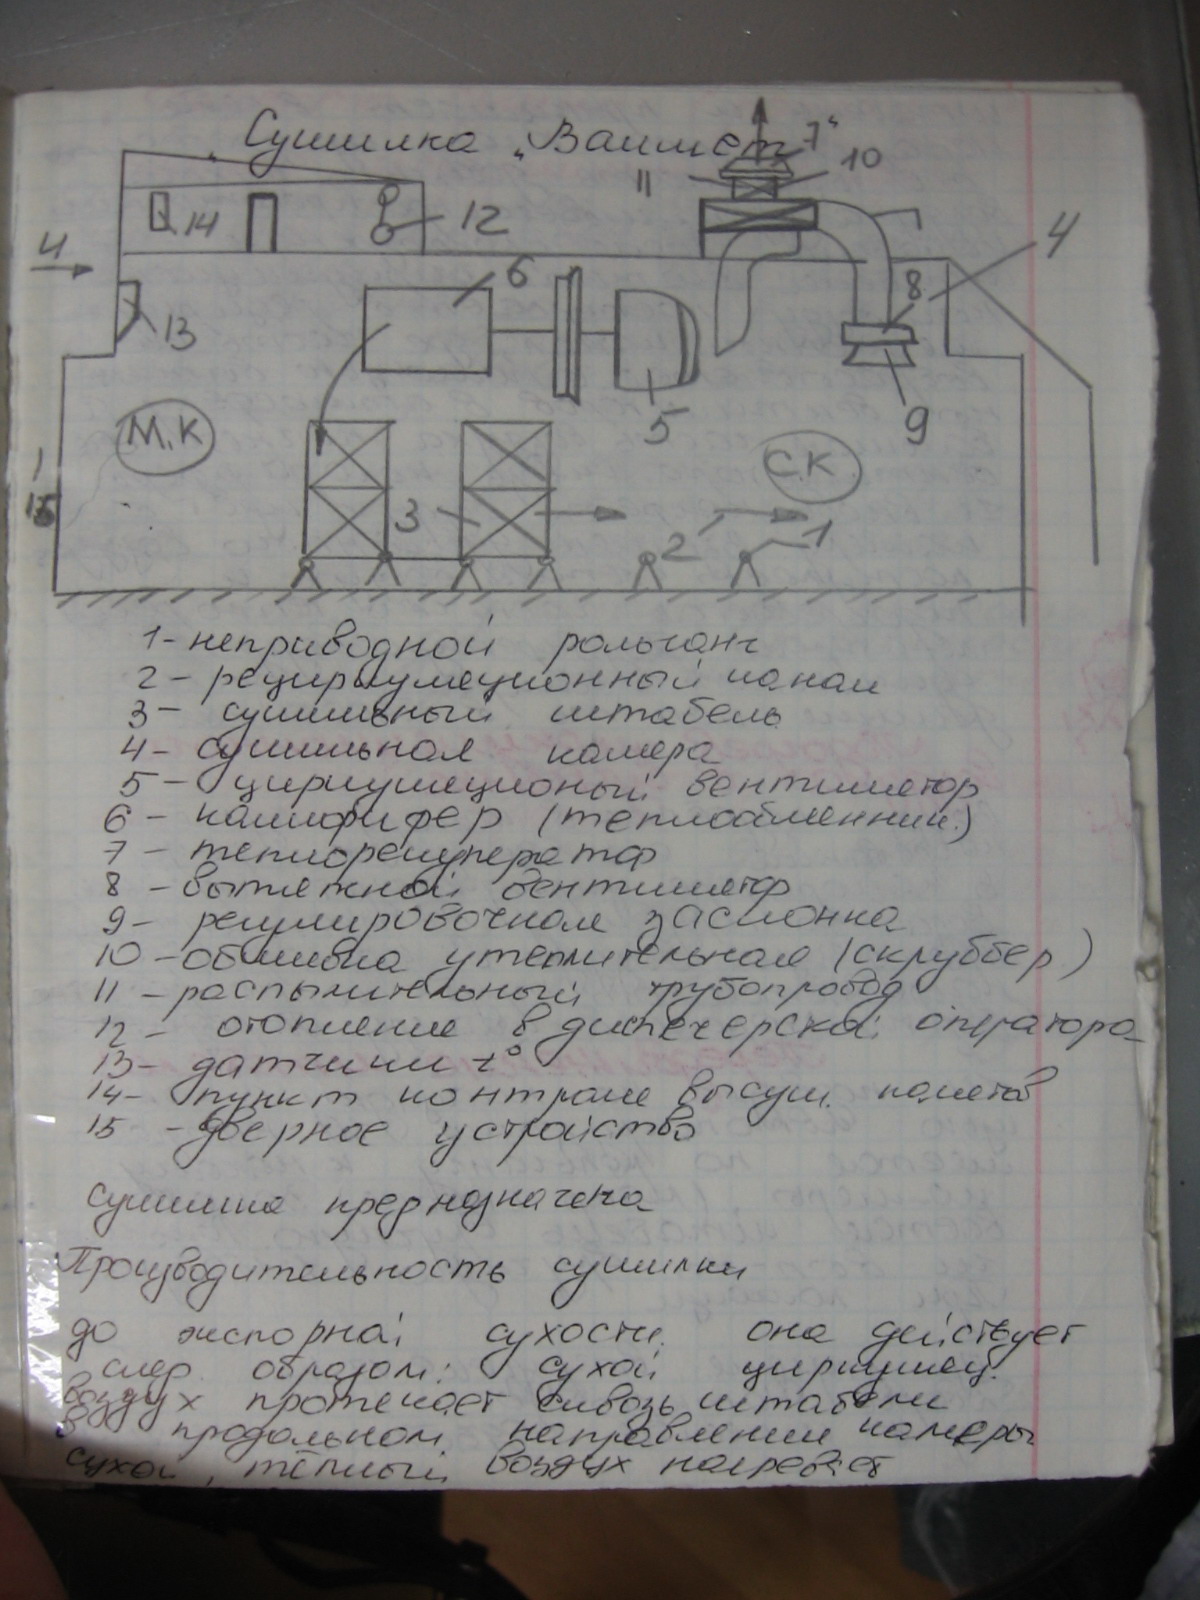 Сушилка „Валмет"
7
11
10
14
12
4
4
6
8
13
5
9
М.К
С.К
1
15
3
2
1
1- неприводной рольганг
2 - рециркуляционный канал
3 - сушильный штабель
4- сушильная камера
5 - циркуляционый вентилятор
6 - калорифер (теплообменник.)
7 - теплорекуператор
8 - вытяжной вентилятор
9- регулировочная заслонка
10 - обшивка утеплительная (скруббер)
11 - распылительный трубопровод
12 - отопление в диспечерской оператора
13- датчики t°
14- пункт контроля высуш. пакетов
15 - дверное устройство
сушилка предназначена
Производительность сушилки
до экспорной сухости. она действует
след. образом: сухой циркуляц.
воздух протекает сквозь штабели
в продольном направлении камеры
сухой, тёплый воздух нагревает